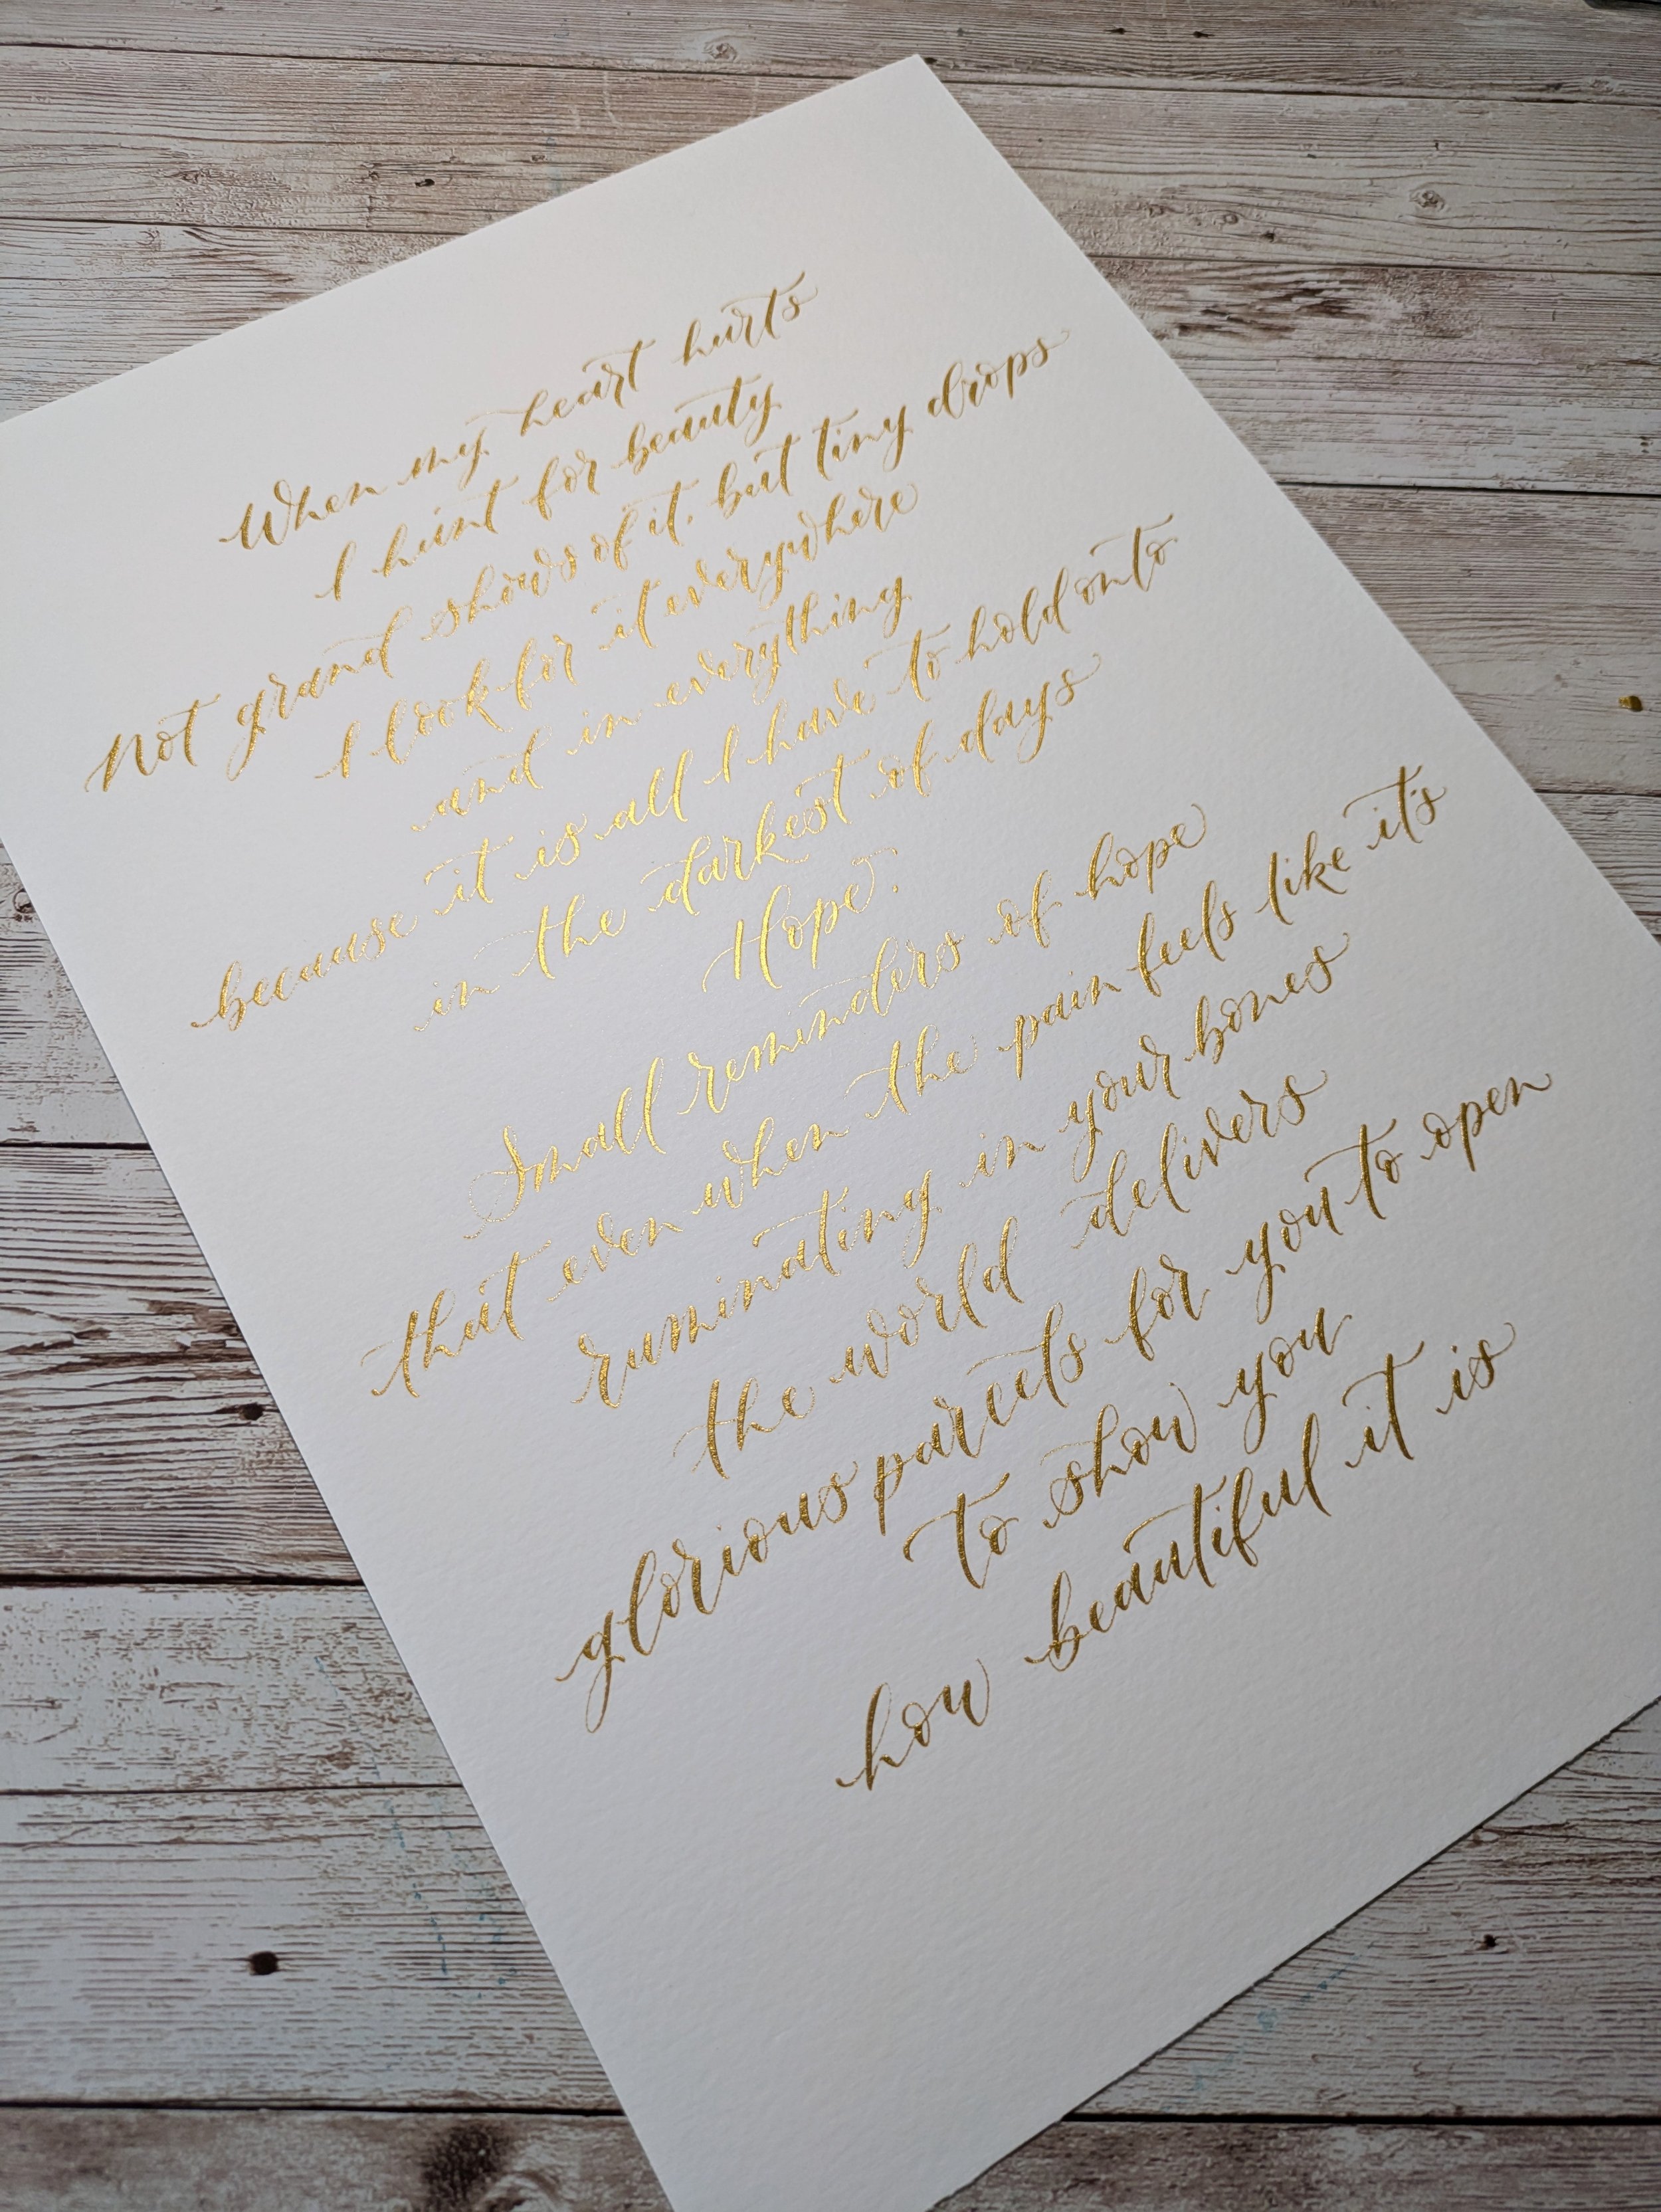 When my heart hurts
I hunt for beauty
Not grand shows of it, but tiny drops
I look for it everywhere
and in everything
because it is all I have to hold onto
in the darkest of days
Hope.
Small reminders of hope
that even when the pain feels like it's
ruminating in your bones
the world delivers
glorious parcels for you to open
to show you
how beautiful it is